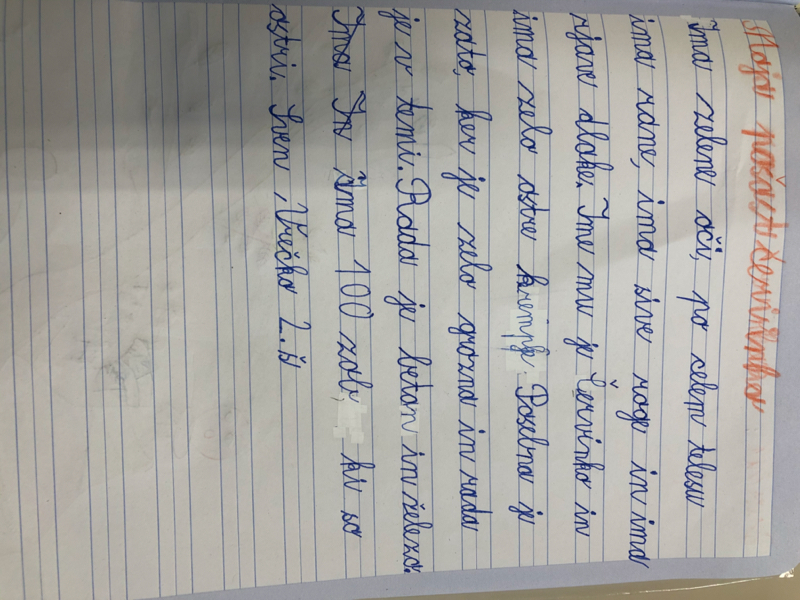 Moja pošast čeveinko
Ima zelene oči, po celem telesu
ima rane, ima sive roge in ima
rjave dlake. Ime mu je Černinko in
ima zelo ostre kremplje. Posebna je
zato, ker je zelo grozna in rada
je v temi. Rada je beton in železo.
Ima In ima 100 zob, ki so
ostri. Sven Vrečko 2.b